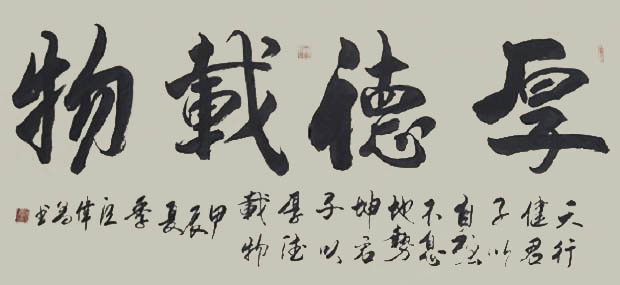 厚德載物
天行
健君
子以
自強
不息
地勢
坤君
子以
厚德
載物
甲辰
夏
季
偉
書